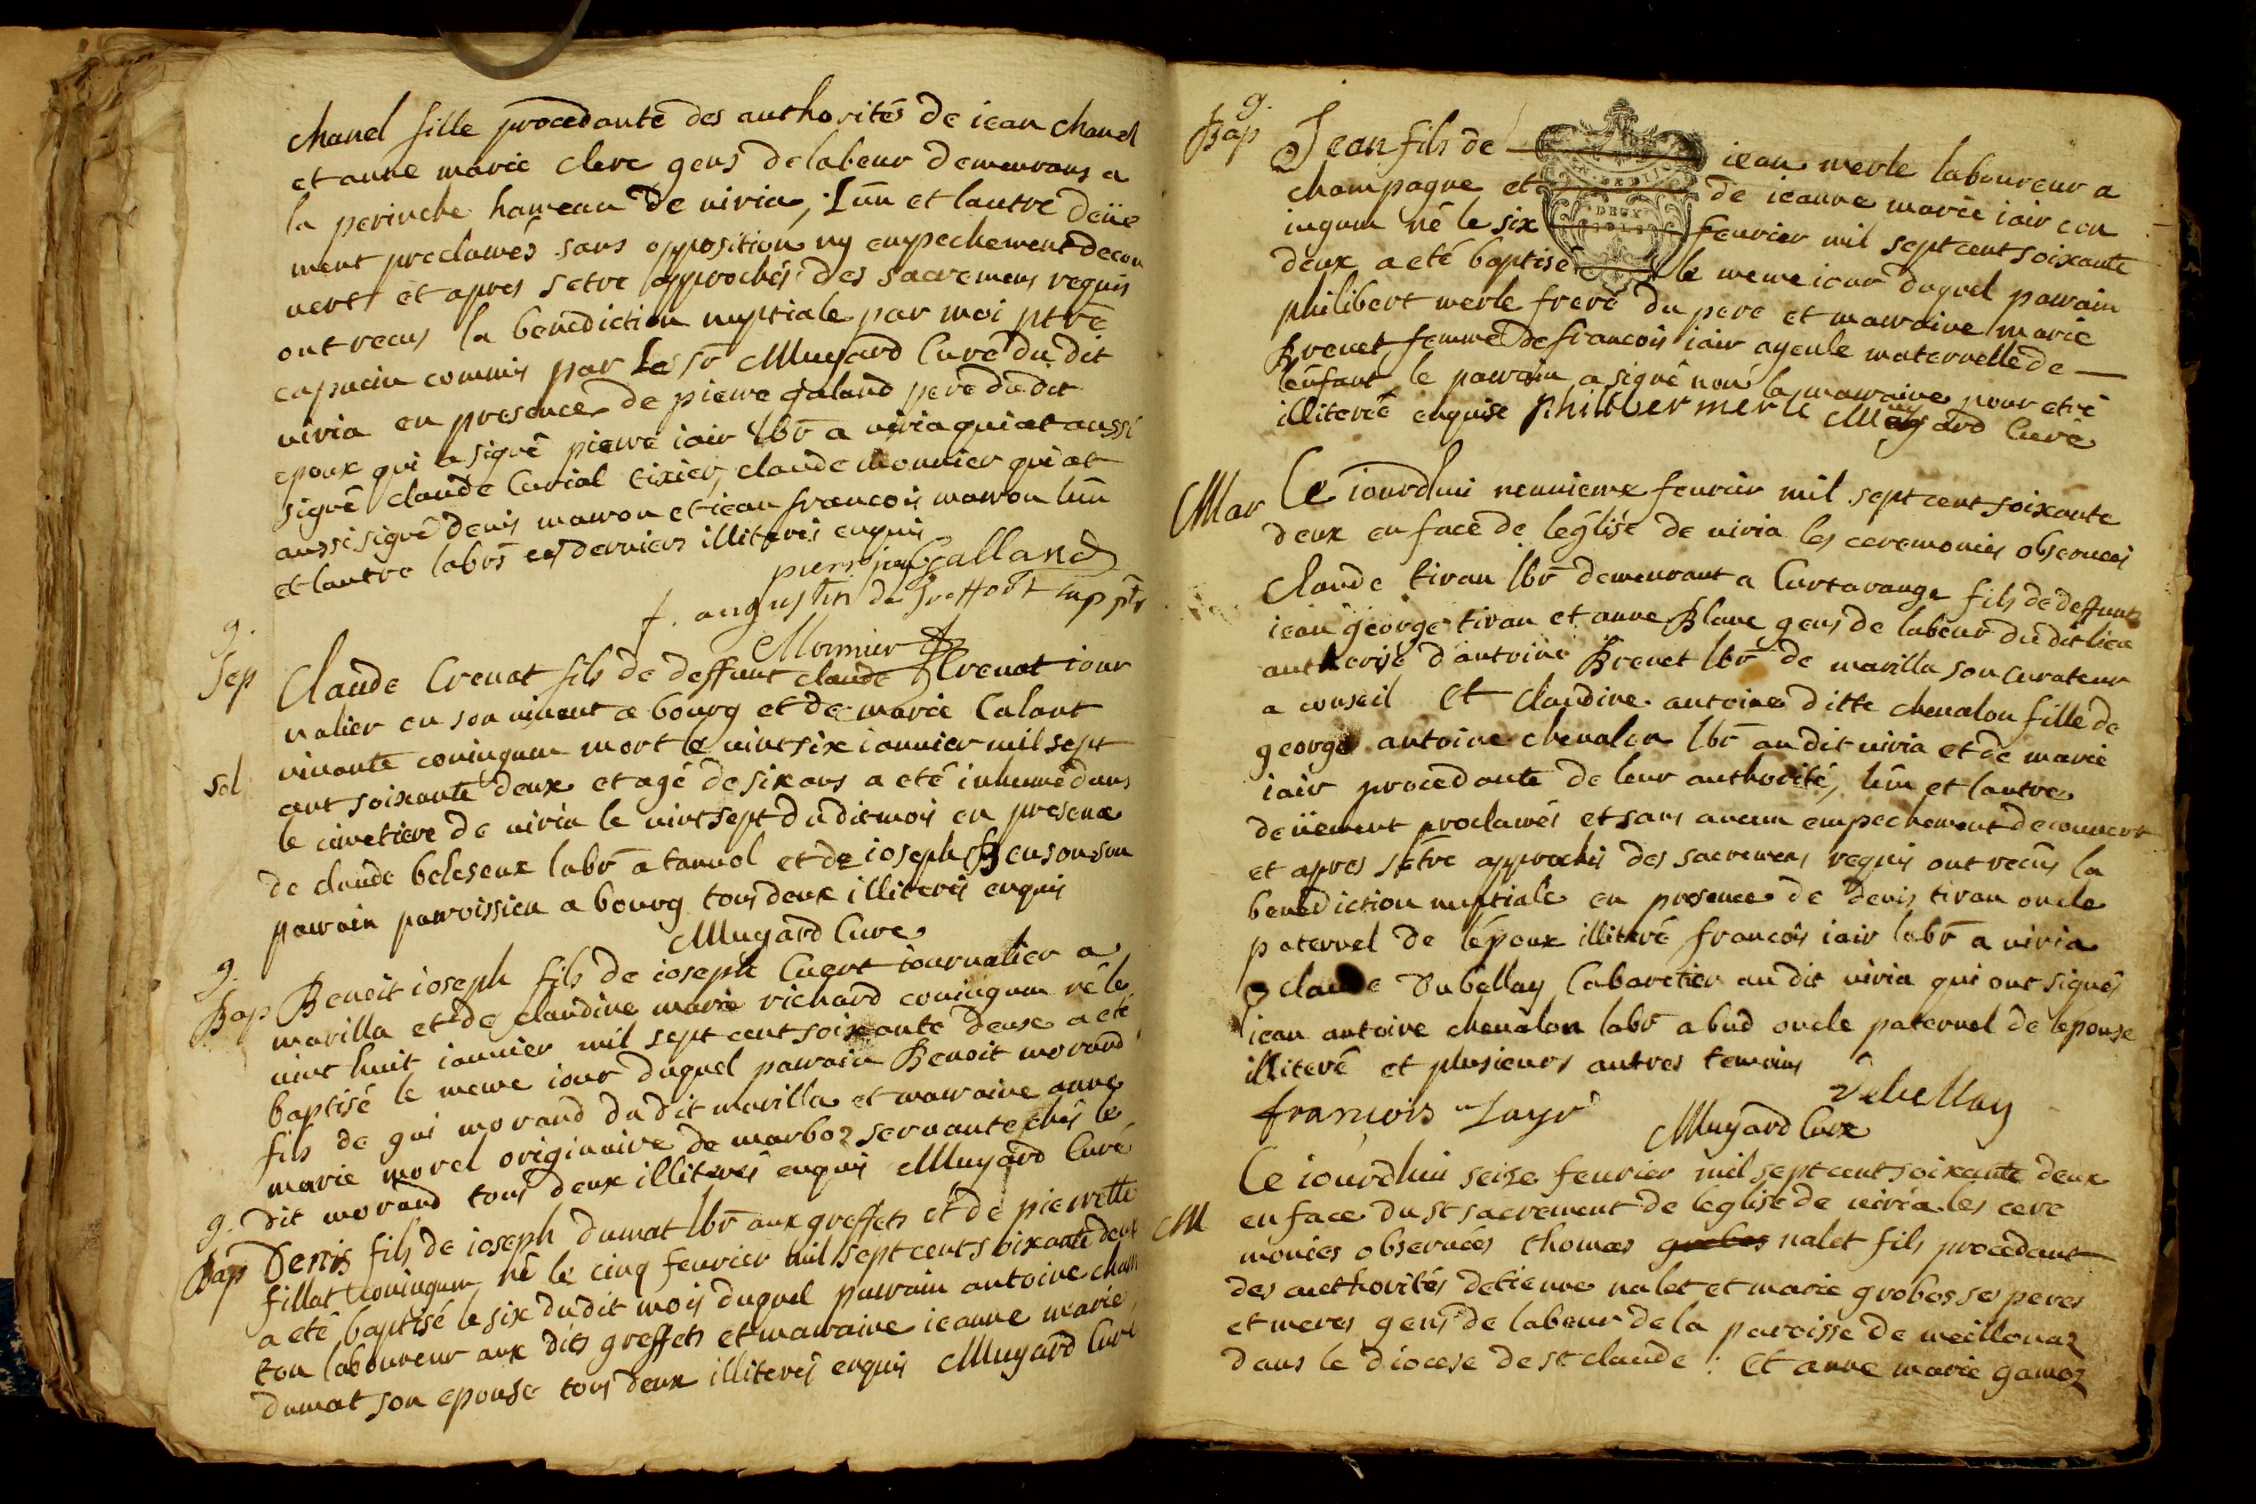 chanel fille procedante des authorités de iean chanel
et anne marie clerc gens de labeur demeurans a
la perinche hameau de viria, lun et lautre deüe
ment proclamés sans opposition ny empechement decou
vert et apres setre approchés des sacremens requis
ont recus la benediction nuptiale par moi ptre
capucin commis par Le sr Mugard Curé du dit
viria en presence de pierre galand pere du dit
epoux qui a signé pierre iair lbr a viria qui at aussi
signé claude Curial tixier, claude monnier qui at
aussi signé denis marron et iean francois marron lun
et lautre labrs ces derniers illiterés enquis
pierre jair Galland
f. augustin de Treffort cap ptr
Monnier
g.
Sep Claude Crenat fils de deffunt claude Crenat iour
nalier en son vivant a bourg et de marie Calant
vivante coniugum mort le vint six ianvier mil sept
sol
cent soixante deux et agé de six ans a eté inhumé dans
le cimetiere de viria le vint sept du dit mois en presence
de claude beleseux labr a tannol et de ioseph
parrain parroissien a bourg tous deux illiterés enquis
Mugard Cure
g.
Bap Benoit ioseph fils de ioseph Cuert iournalier a
marilla et de claudine marie richard coniugum né le
vint huit ianvier mil sept cent soixante deux a eté
baptisé le meme iour duquel parrain Benoit morand
fils de gui morand du dit marilla et marraine anne
marie morel originaire de marboz servante chés le
dit morand tous deux illiterés enquis Mugard Curé
g.
Bap Denis fils de ioseph dumat lbr aux greffets et de pierrette
fillat coniugum né le cinq fevrier mil sept cent soixante deux
a eté baptisé le six du dit mois duquel parrain antoine cham
ton laboureur aux dits greffets et marraine ieanne marie
dumat son epouse tous deux illiterés enquis Mugard Curé
g.
Bap Jean fils de iean merle laboureur a
champagne et de ieanne marie iair con
iugum né le six fevrier mil sept cent soixante
deux a eté baptisé le meme iour duquel parrain
philibert merle frere du pere et marraine marie
Brevet femme de francois iair ayeule maternelle de
lenfant le parrain a signé non la marraine pour etre
illiterée enquise philibermerle Mugard Curé
Mar Ce iourdhui neuvieme fevrier mil sept cent soixante
deux en face de léglise de viria les ceremonies observées
Claude tiran lbr demeurant a Curtarange fils de deffunts
iean george tiran et anne Blanc gens de labeur du dit lieu
autherisé d'antoine Brevet lbr de marilla son curateur
a conseil Et claudine antoine ditte chevalon fille de
george antoine chevalon lbr au dit viria et de marie
iair procedante de leur authorité, lun et lautre
deüement proclamés et sans aucun empechement decouvert
et apres setre approchés des sacremens requis ont recus la
benediction nuptiale en presence de denis tiran oncle
paternel de lépoux illiteré francois iair labr a viria
claude Dubellay Cabaretier au dit viria qui ont signés
iean antoine chevalon labr a bud oncle paternel de lepouse
illiteré et plusieurs autres temoins
francois Jayr debellay
Mugard Cure
M Ce iourdhui seize fevrier mil sept cent soixante deux
en face du st sacrement de leglise de viria les cere
monies observées thomas grobos nalet fils procedant
des authorités detienne nalet et marie grobos ses peres
et meres gens de labeur de la paroisse de meillonaz
dans le diocese de st claude : Et anne marie gamoz